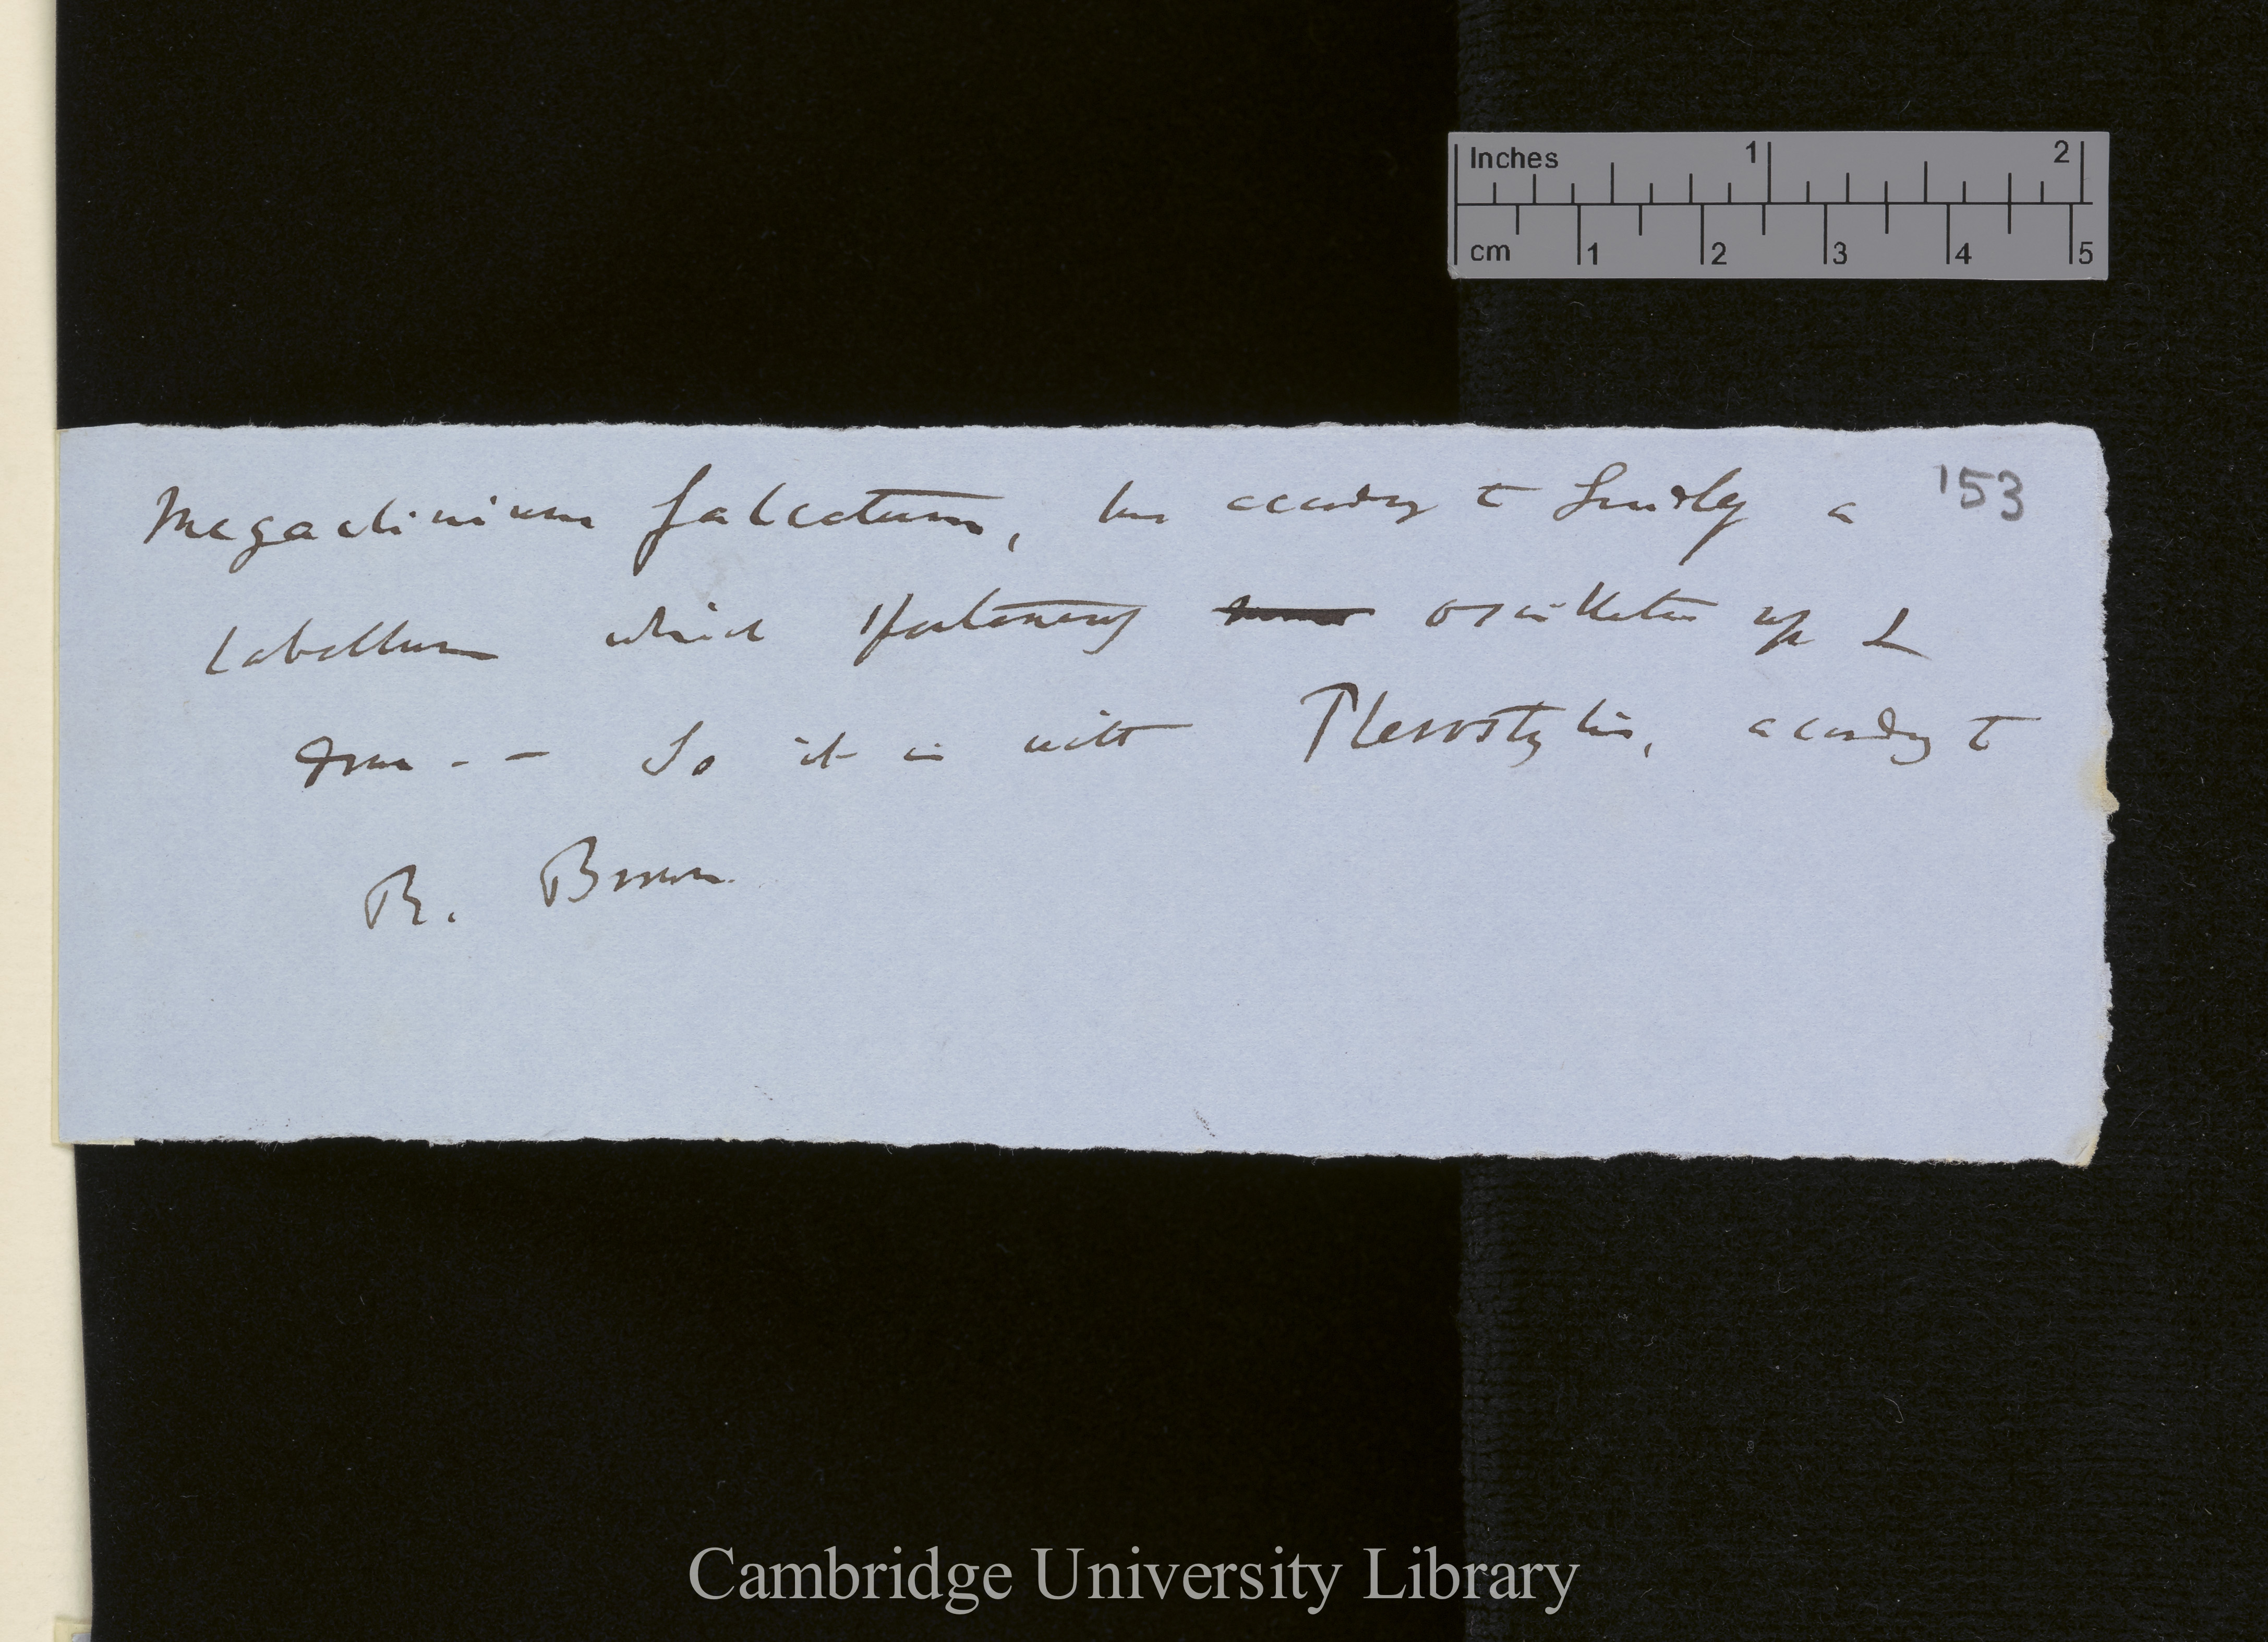 Inches 1 2
cm 1 2 3 4 5
153
Megaclinium falcatum, has according to Lindley a
labellum which spontaneously oscillates up &
down - - So it is with Pterostylis, according to
R. Brown
Cambridge University Library